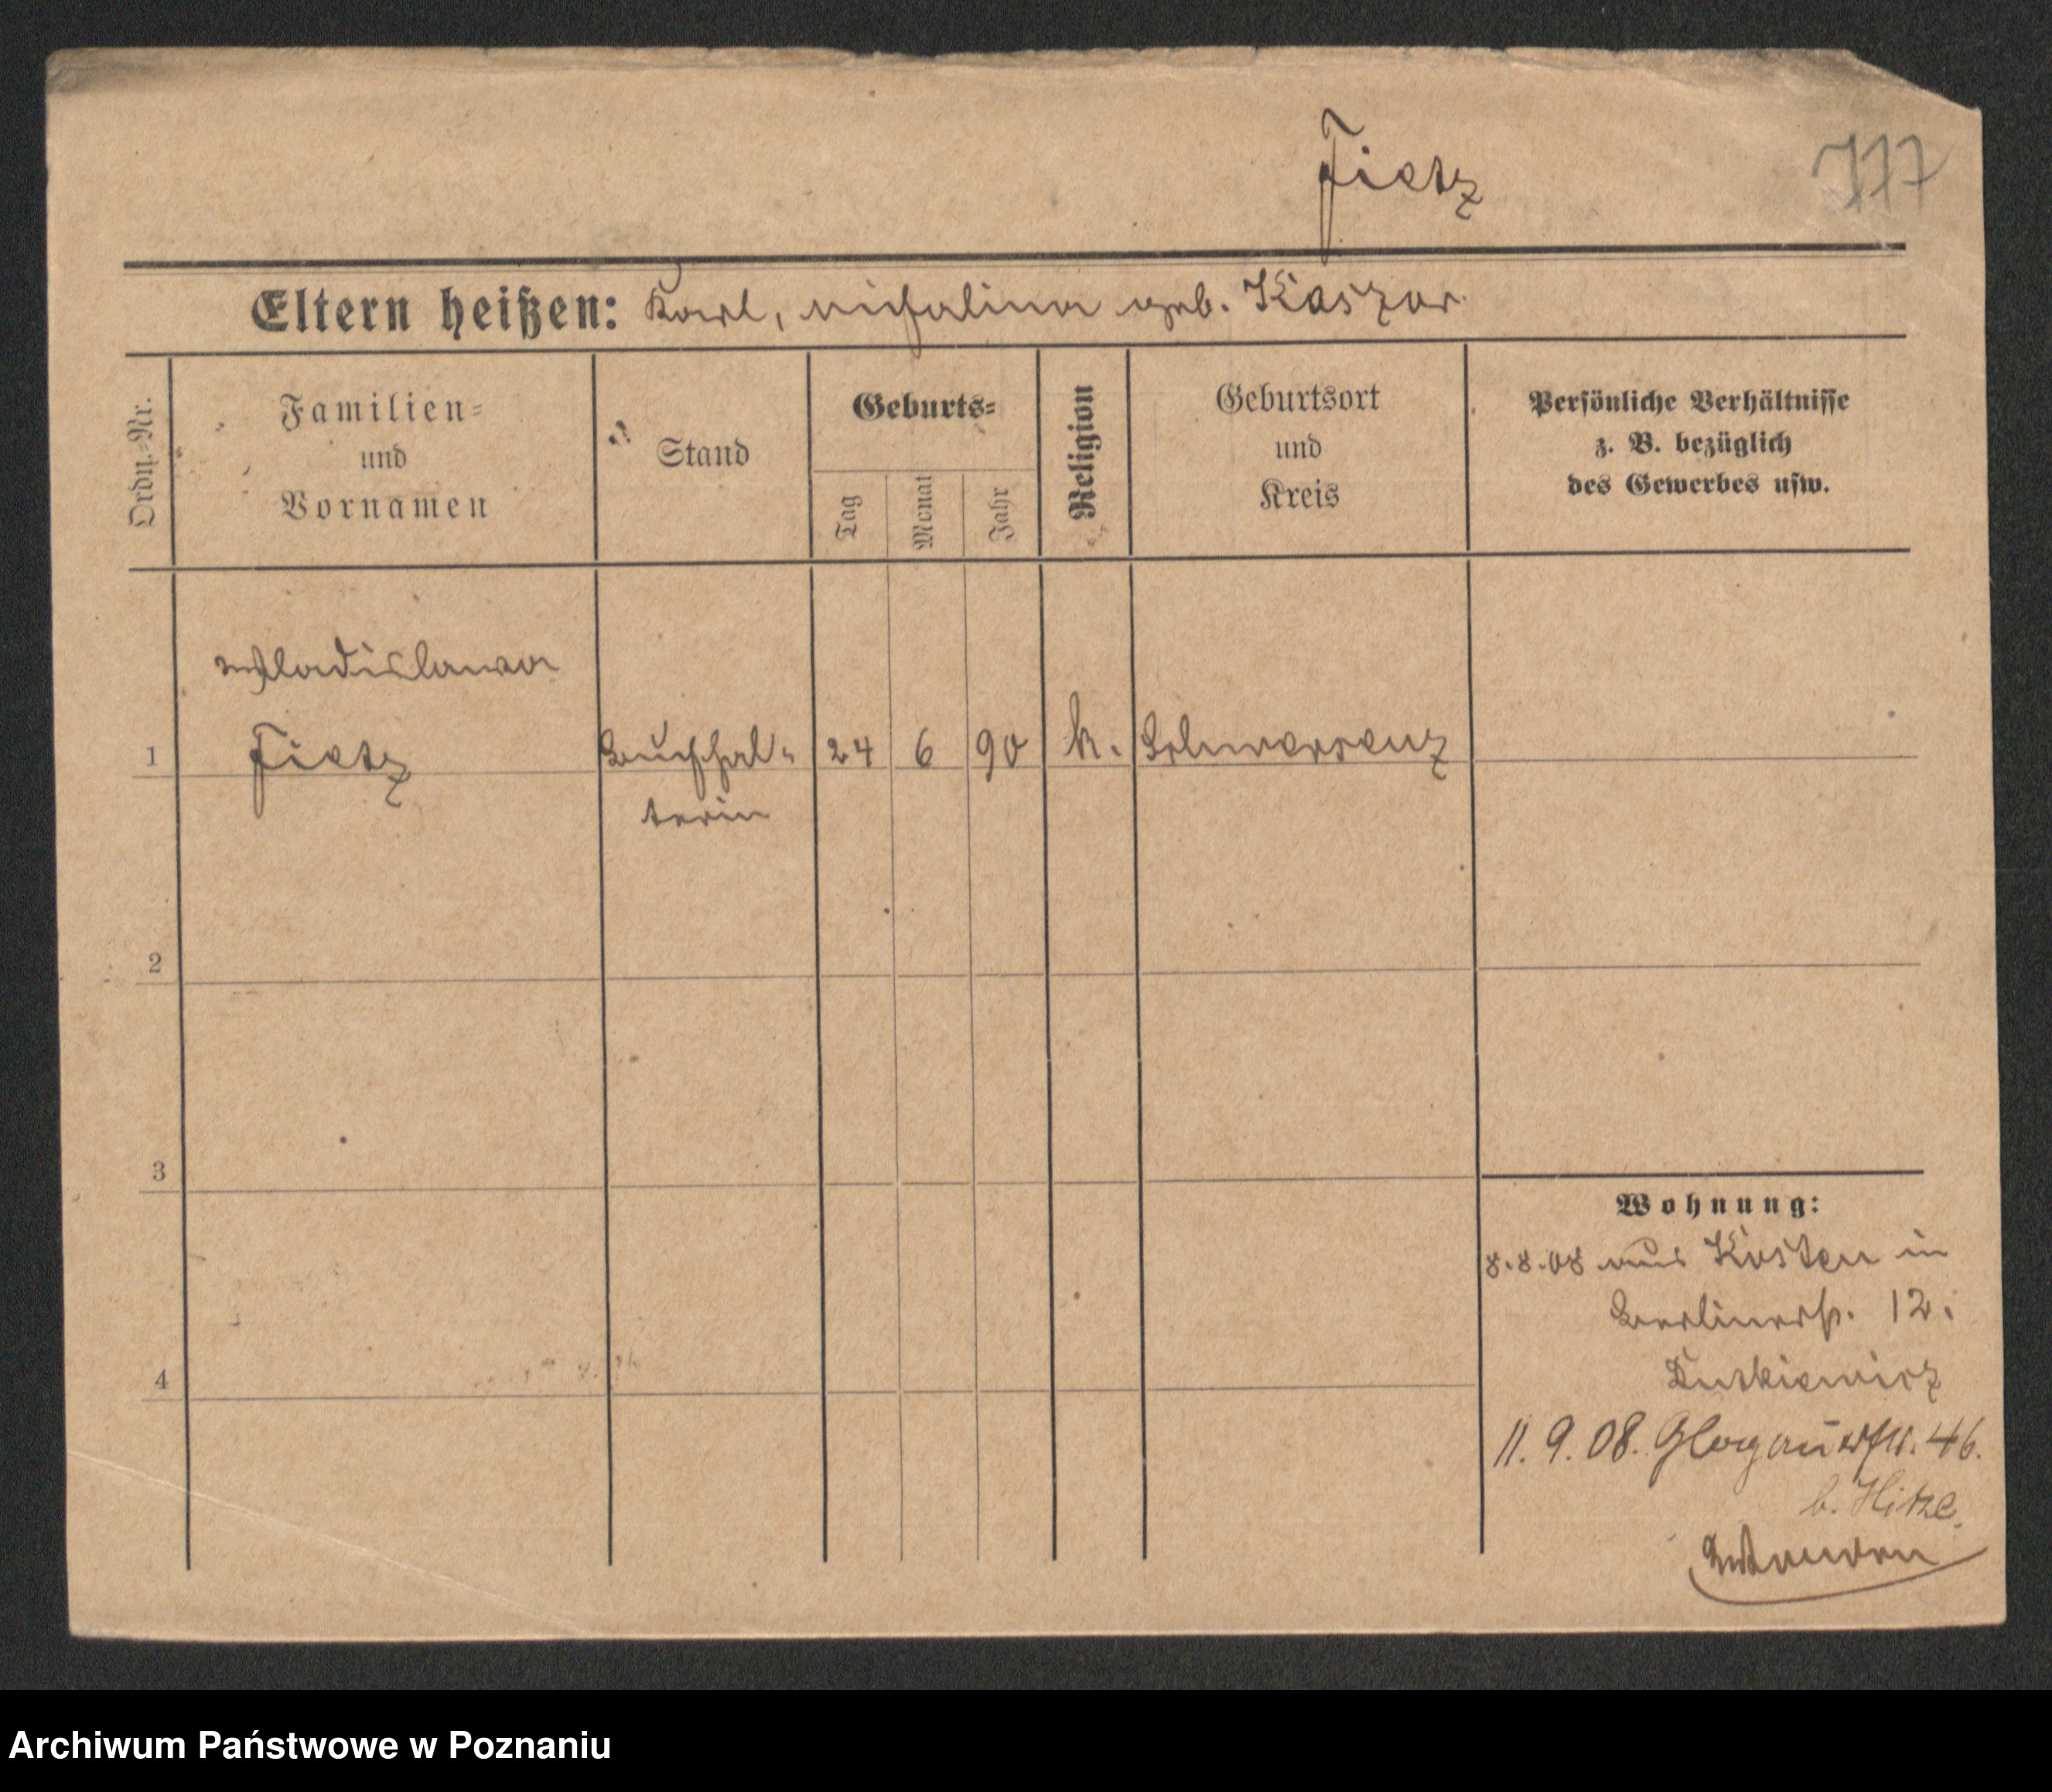 Fietz
777
Eltern heißen: Karl, Michalina geb. Kaszor
Ordn.-Nr.
Familien-
und
Vornamen
Stand
Geburts-
Tag
Monat
Jahr
Religion
Geburtsort
und
Kreis
Persönliche Verhältnisse
z. B. bezüglich
des Gewerbes usw.
Wladislawa
1 Fietz Buchhal- 24 6 90 k. Schwersenz
terin
2
3
4
Wohnung:
8.8.08 aus Kosten in
Berlinerstr. 12.
11. 9. 08. Glogauerstr. 46.
b. Hitze
Archiwum Państwowe w Poznaniu